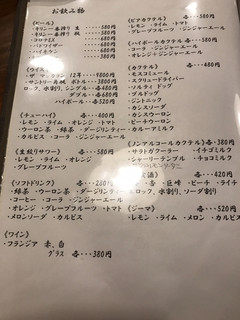 お飲み物
《ビール》
・キリン一番搾り 生・・・380円
・キリン一番搾り 瓶・・・580円
・コロナEX ・・・580円
・バドワイザー ・・・580円
・ハイネケン ・・・580円
・ギネス ・・・680円
・ザ マッカラン 12年・・・9800円
・サントリー角瓶 ボトル・・・3800円
ロック、水割り、シングル 各・・・440円
ダブル 各・・・560円
ハイボール・・・320円
《チューハイ》 各・・・400円
・レモン ・ライム ・オレンジ ・トマト
・ウーロン茶 ・緑茶 ・ダージリンティー
・カルピス ・ジンジャーエール ・コーラ
《生絞りサワー》 各・・・580円
・レモン ・ライム ・オレンジ
・グレープフルーツ
《ソフトドリンク》 各・・・280円
・緑茶 ・ウーロン茶 ・ダージリンティー
・コーヒー ・コーラ ・ジンジャーエール
・オレンジ ・グレープフルーツ ・トマト
・メロンソーダ ・カルピス
《ワイン》
・フランジア 赤、白
グラス 各・・・380円
《ビアカクテル》 各・・・580円
・レモン ・ライム ・トマト
・グレープフルーツ ・ジンジャーエール
《ハイボールカクテル》 各・・・380円
・コーラ ・ジンジャーエール
《カクテル》 各・・・480円
・モスコミュール
・スクリュードライバー
・ソルティ ドッグ
・ブルドッグ
・ジントニック
・カシスソーダ
・カシスオレンジ
・カシスウーロン
・ピーチウーロン
・カルーアミルク
《ノンアルコールカクテル》 各・・・380円
・サラトガクーラー ・イチゴミルク
・シャーリーテンプル ・チョコミルク
各・・・420円
・杏 ・巨峰 ・ピーチ ・ライチ
ロック、水割り、ソーダ割り
《ジーマ》 各・・・520円
・レモン ・ライム ・メロン ・カルピス